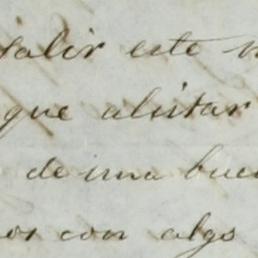 salir este
que alistar
de una bue
os con algo